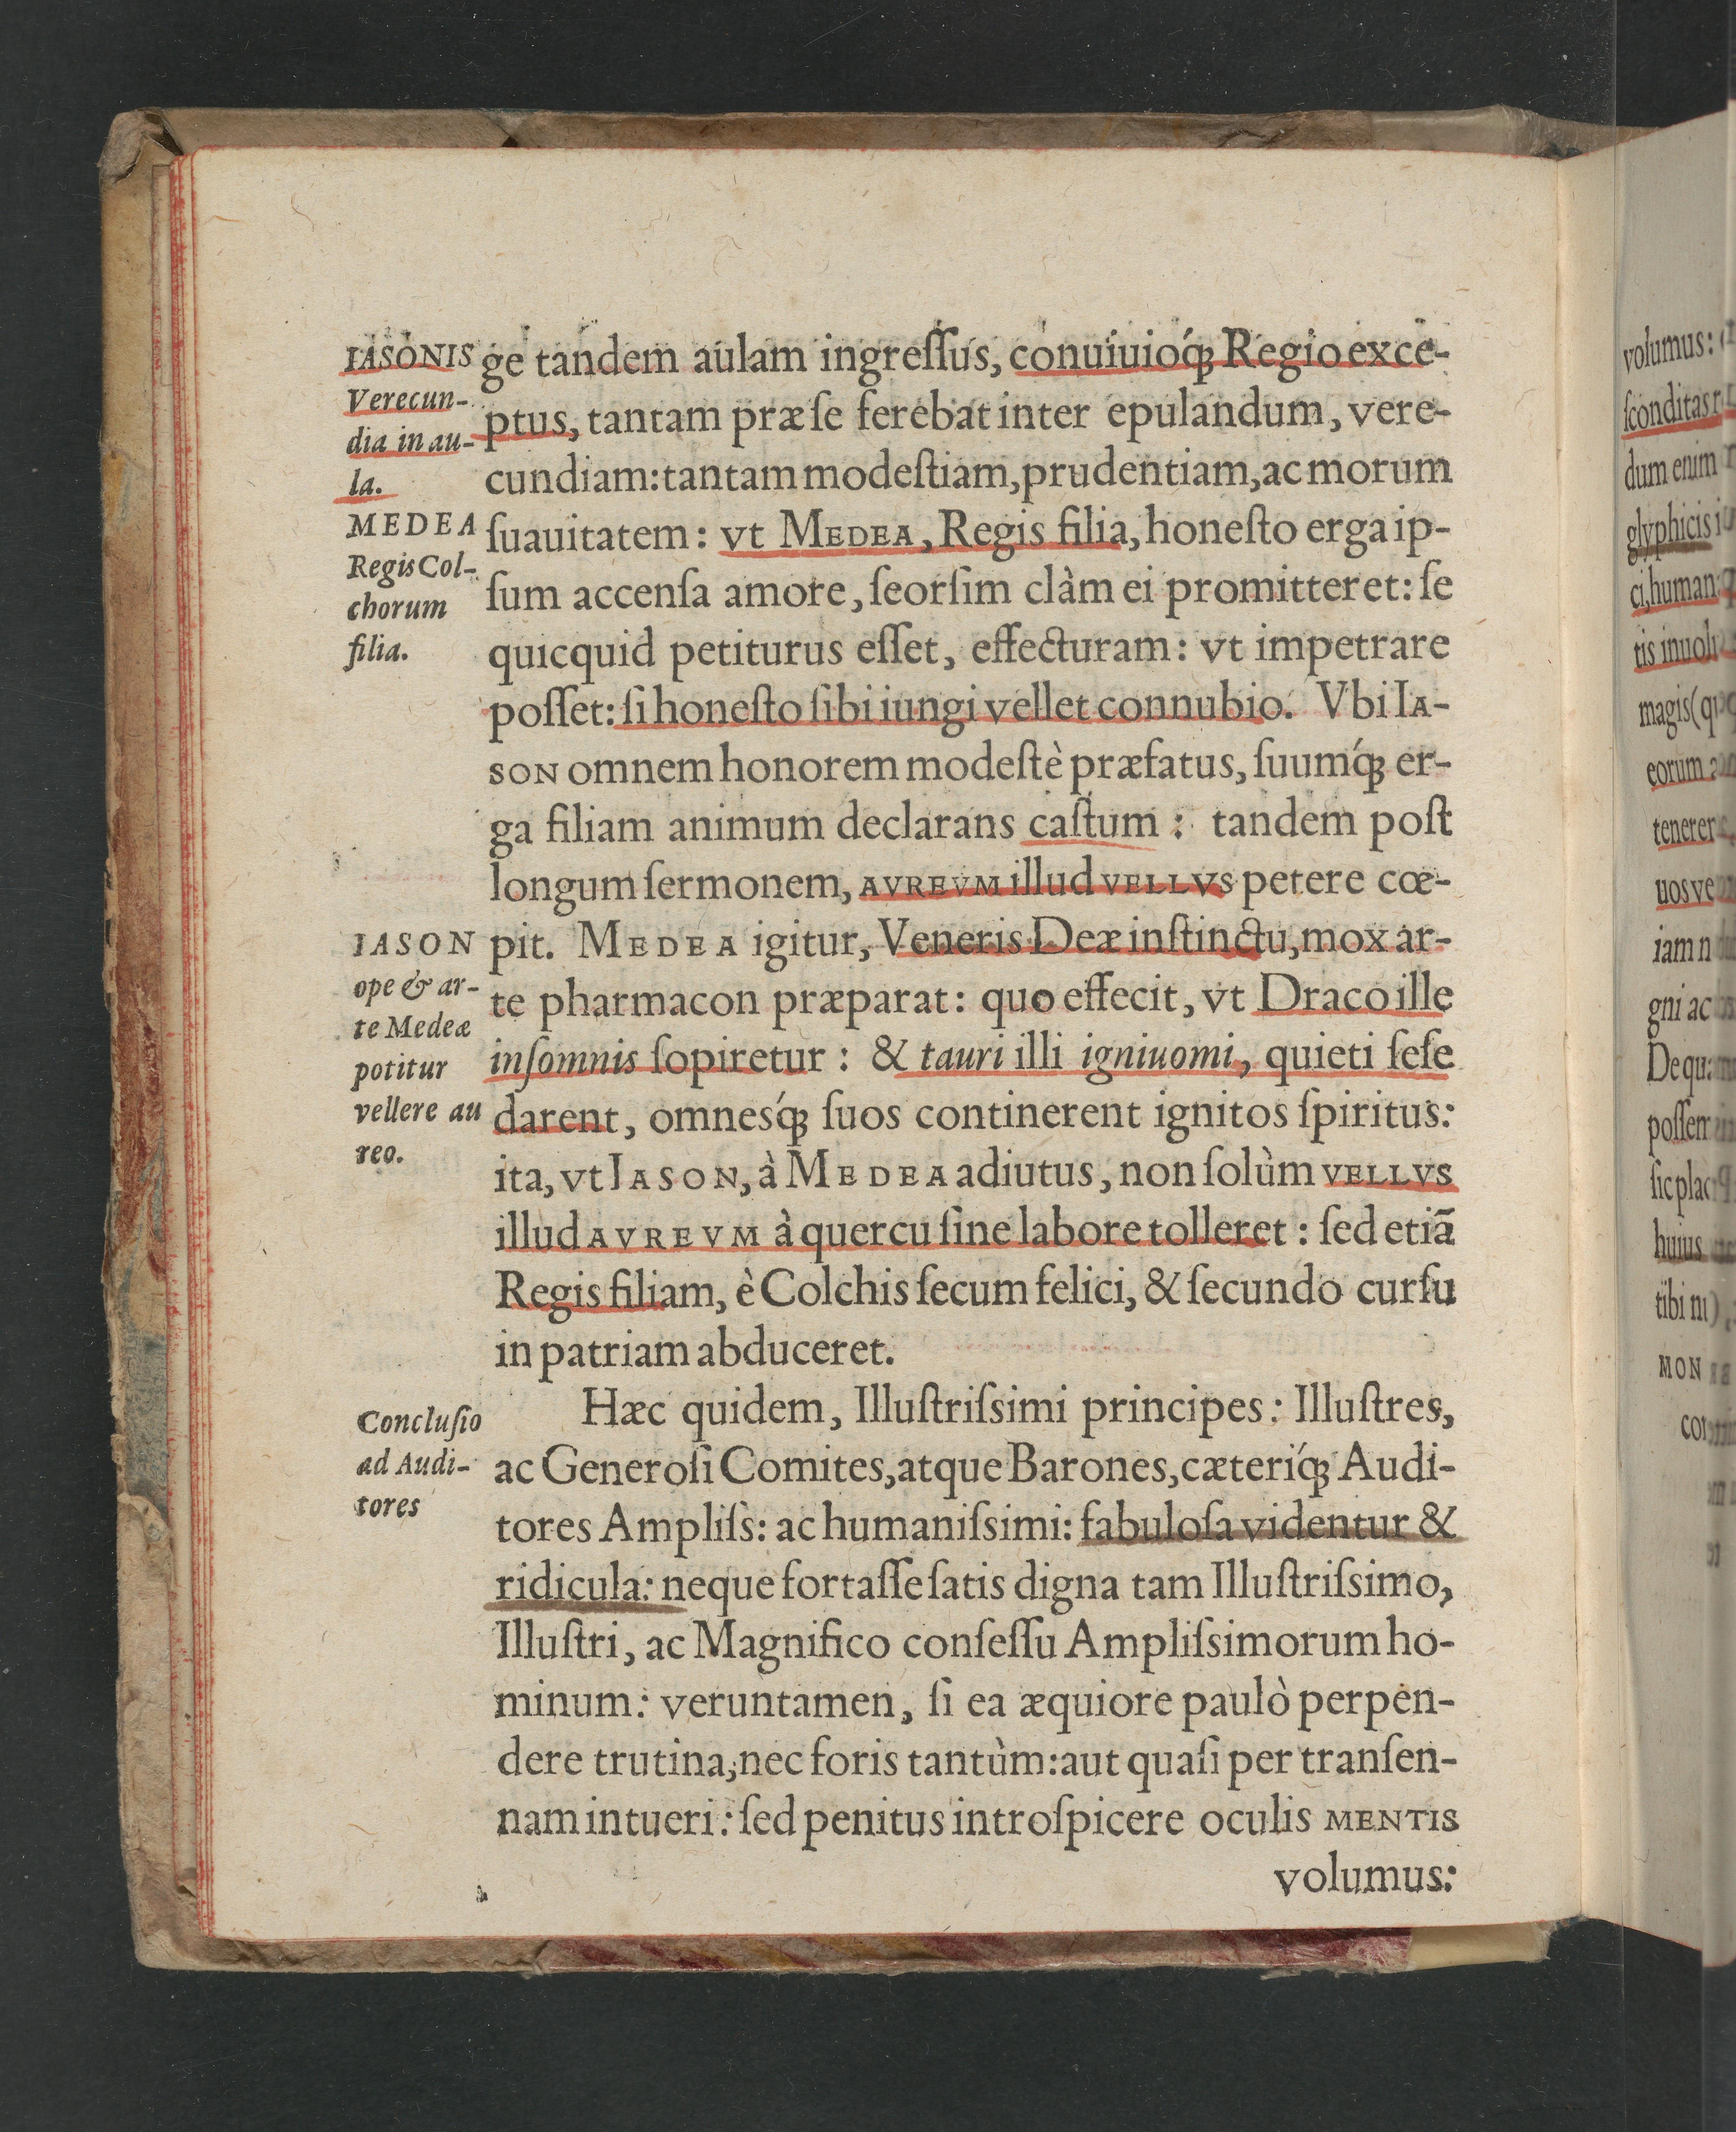 IASONIS
Verecun-
dia in au-
la.
MEDEA
Regis Col-
chorum
filia.
IASON
ope & ar-
te Medeæ
potitur
vellere au
reo.
Conclusio
ad Audi-
tores
ge tandem aulam ingreſſus, conuiuioq́ꝫ Regio exce-
ptus, tantam præ ſe ferebat inter epulandum, vere-
cundiam: tantam modeſtiam, prudentiam, ac morum
ſuauitatem: vt MEDEA, Regis filia, honeſto erga ip-
ſum accenſa amore, ſeorſim clàm ei promitteret: ſe
quicquid petiturus eſſet, effecturam: vt impetrare
poſſet: ſi honeſto ſibi iungi vellet connubio. Vbi IA-
SON omnem honorem modeſtè præfatus, ſuumq́ꝫ er-
ga filiam animum declarans caſtum: tandem poſt
longum ſermonem, AVREVM illud VELLVS petere cœ-
pit. MEDEA igitur, Veneris Deæ inſtinctu, mox ar-
te pharmacon præparat: quo effecit, vt Draco ille
inſomnis ſopiretur: & tauri illi igniuomi, quieti ſeſe
darent, omnesq́ꝫ ſuos continerent ignitos ſpiritus:
ita, vt IASON, à MEDEA adiutus, non ſolùm VELLVS
illud AVREVM à quercu ſine labore tolleret: ſed etiã
Regis filiam, è Colchis ſecum felici, & ſecundo curſu
in patriam abduceret.
Hæc quidem, Illuſtriſsimi principes: Illuſtres,
ac Generoſi Comites, atque Barones, cæteriq́ꝫ Audi-
tores Ampliſs: ac humaniſsimi: fabuloſa videntur &
ridicula: neque fortaſſe ſatis digna tam Illuſtriſsimo,
Illuſtri, ac Magnifico conſeſſu Ampliſsimorum ho-
minum: veruntamen, ſi ea æquiore paulò perpen-
dere trutina, nec foris tantùm: aut quaſi per tranſen-
nam intueri: ſed penitus introſpicere oculis MENTIS
volumus:
volumus:
ſconditas
dum enim
glyphicis
ci, human
tis inuol
magis (q
eorum
tenerer
uos ve
iam n
gni ac
De qu
poſſem
ſic plac
huius
tibi
MON